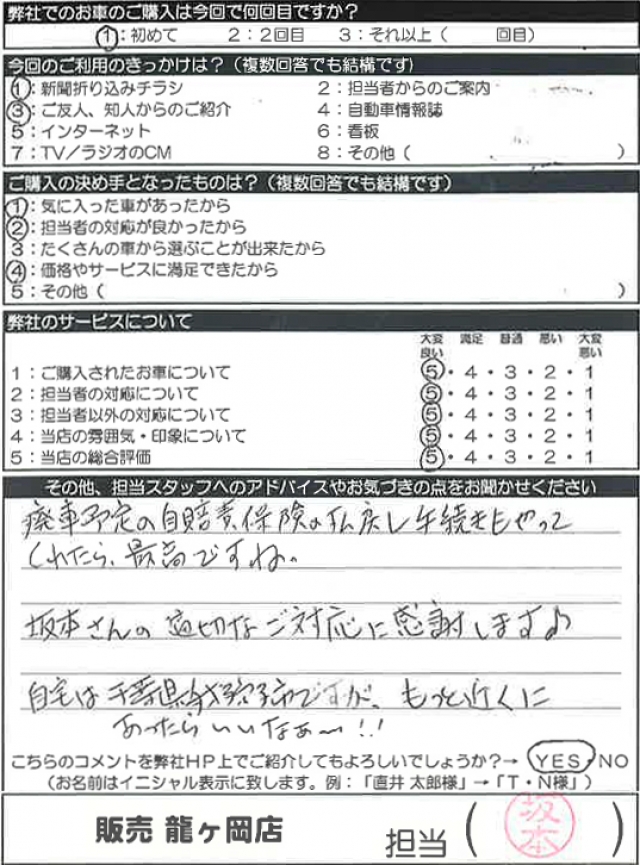 弊社でのお車のご購入は今回で何回目ですか？
1：初めて　2：2回目　3：それ以上（　　回目）
今回のご利用のきっかけは？（複数回答でも結構です）
1：新聞折り込みチラシ　2：担当者からのご案内
3：ご友人、知人からのご紹介　4：自動車情報誌
5：インターネット　6：看板
7：TV／ラジオのCM　8：その他（　　）
ご購入の決め手となったものは？（複数回答でも結構です）
1：気に入った車があったから
2：担当者の対応が良かったから
3：たくさんの車から選ぶことが出来たから
4：価格やサービスに満足できたから
5：その他（　　）
弊社のサービスについて
大変良い　満足　普通　悪い　大変悪い
1：ご購入されたお車について　5・4・3・2・1
2：担当者の対応について　5・4・3・2・1
3：担当者以外の対応について　5・4・3・2・1
4：当店の雰囲気・印象について　5・4・3・2・1
5：当店の総合評価　5・4・3・2・1
その他、担当スタッフへのアドバイスやお気づきの点をお聞かせください
廃車予定の自賠責保険の払戻し手続きもやって
くれたら、最高ですね。
坂本さんの適切なご対応に感謝します♪
自宅は千葉県我孫子市ですが、もっと近くに
あったらいいなぁ〜!!
こちらのコメントを弊社HP上でご紹介してもよろしいでしょうか？→ YES・NO
（お名前はイニシャル表示に致します。例：「直井 太郎様」→「T・N様」）
販売 龍ヶ岡店　担当（坂本）